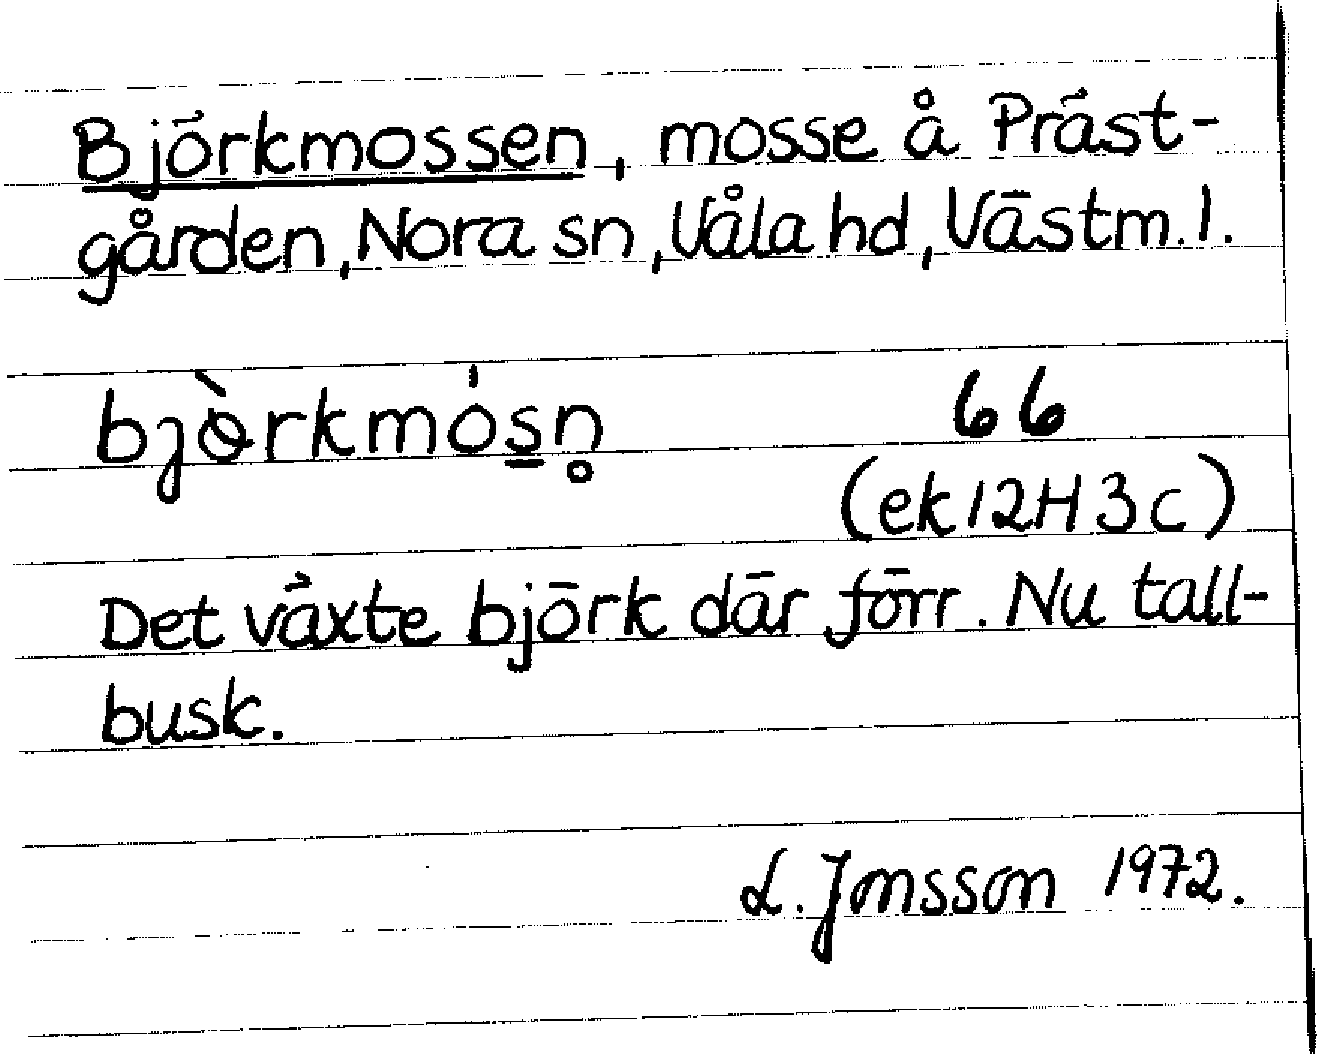 Björkmossen, mosse å Präst-
gården, Nora sn, Våla hd, Västm. l.
bjò̩rkmós̲n̥ 66
(ek 12H 3c)
Det växte björk där förr. Nu tall-
busk.
L. Jonsson 1972.